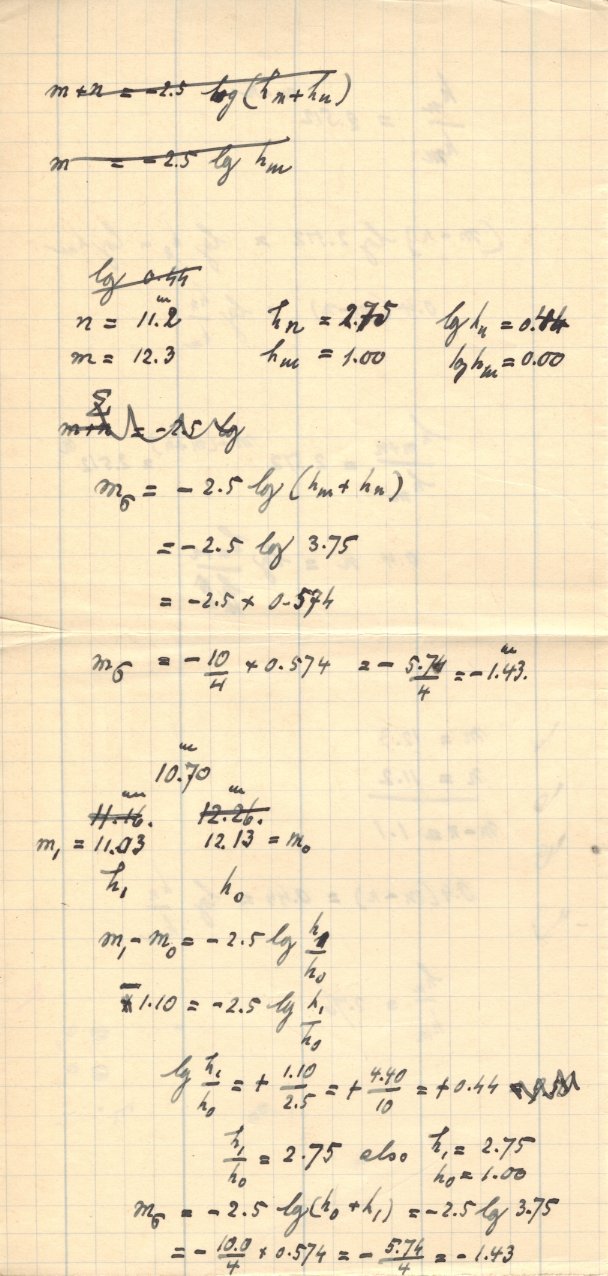 m + n = -2.5 log (h_m + h_n)
m = -2.5 lg h_m
lg 0.44
n = 11.2^m h_n = 2.75 lg h_n = 0.44
m = 12.3 h_m = 1.00 lg h_m = 0.00
Σ
m+n = -2.5 lg
m_σ = -2.5 log (h_m + h_n)
= -2.5 log 3.75
= -2.5 × 0.574
m_σ = - 10/4 × 0.574 = - 5.74/4 = -1.43^m.
10.70^m
11.16^m. 12.26^m.
m_1 = 11.03 12.13 = m_0
h_1 h_0
m_1 - m_0 = -2.5 log h_1/h_0
-1.10 = -2.5 lg h_1/h_0
lg h_1/h_0 = + 1.10/2.5 = + 4.40/10 = +0.44
h_1/h_0 = 2.75 also h_1 = 2.75
h_0 = 1.00
m_σ = -2.5 lg (h_0 + h_1) = -2.5 lg 3.75
= - 10.0/4 × 0.574 = - 5.74/4 = -1.43